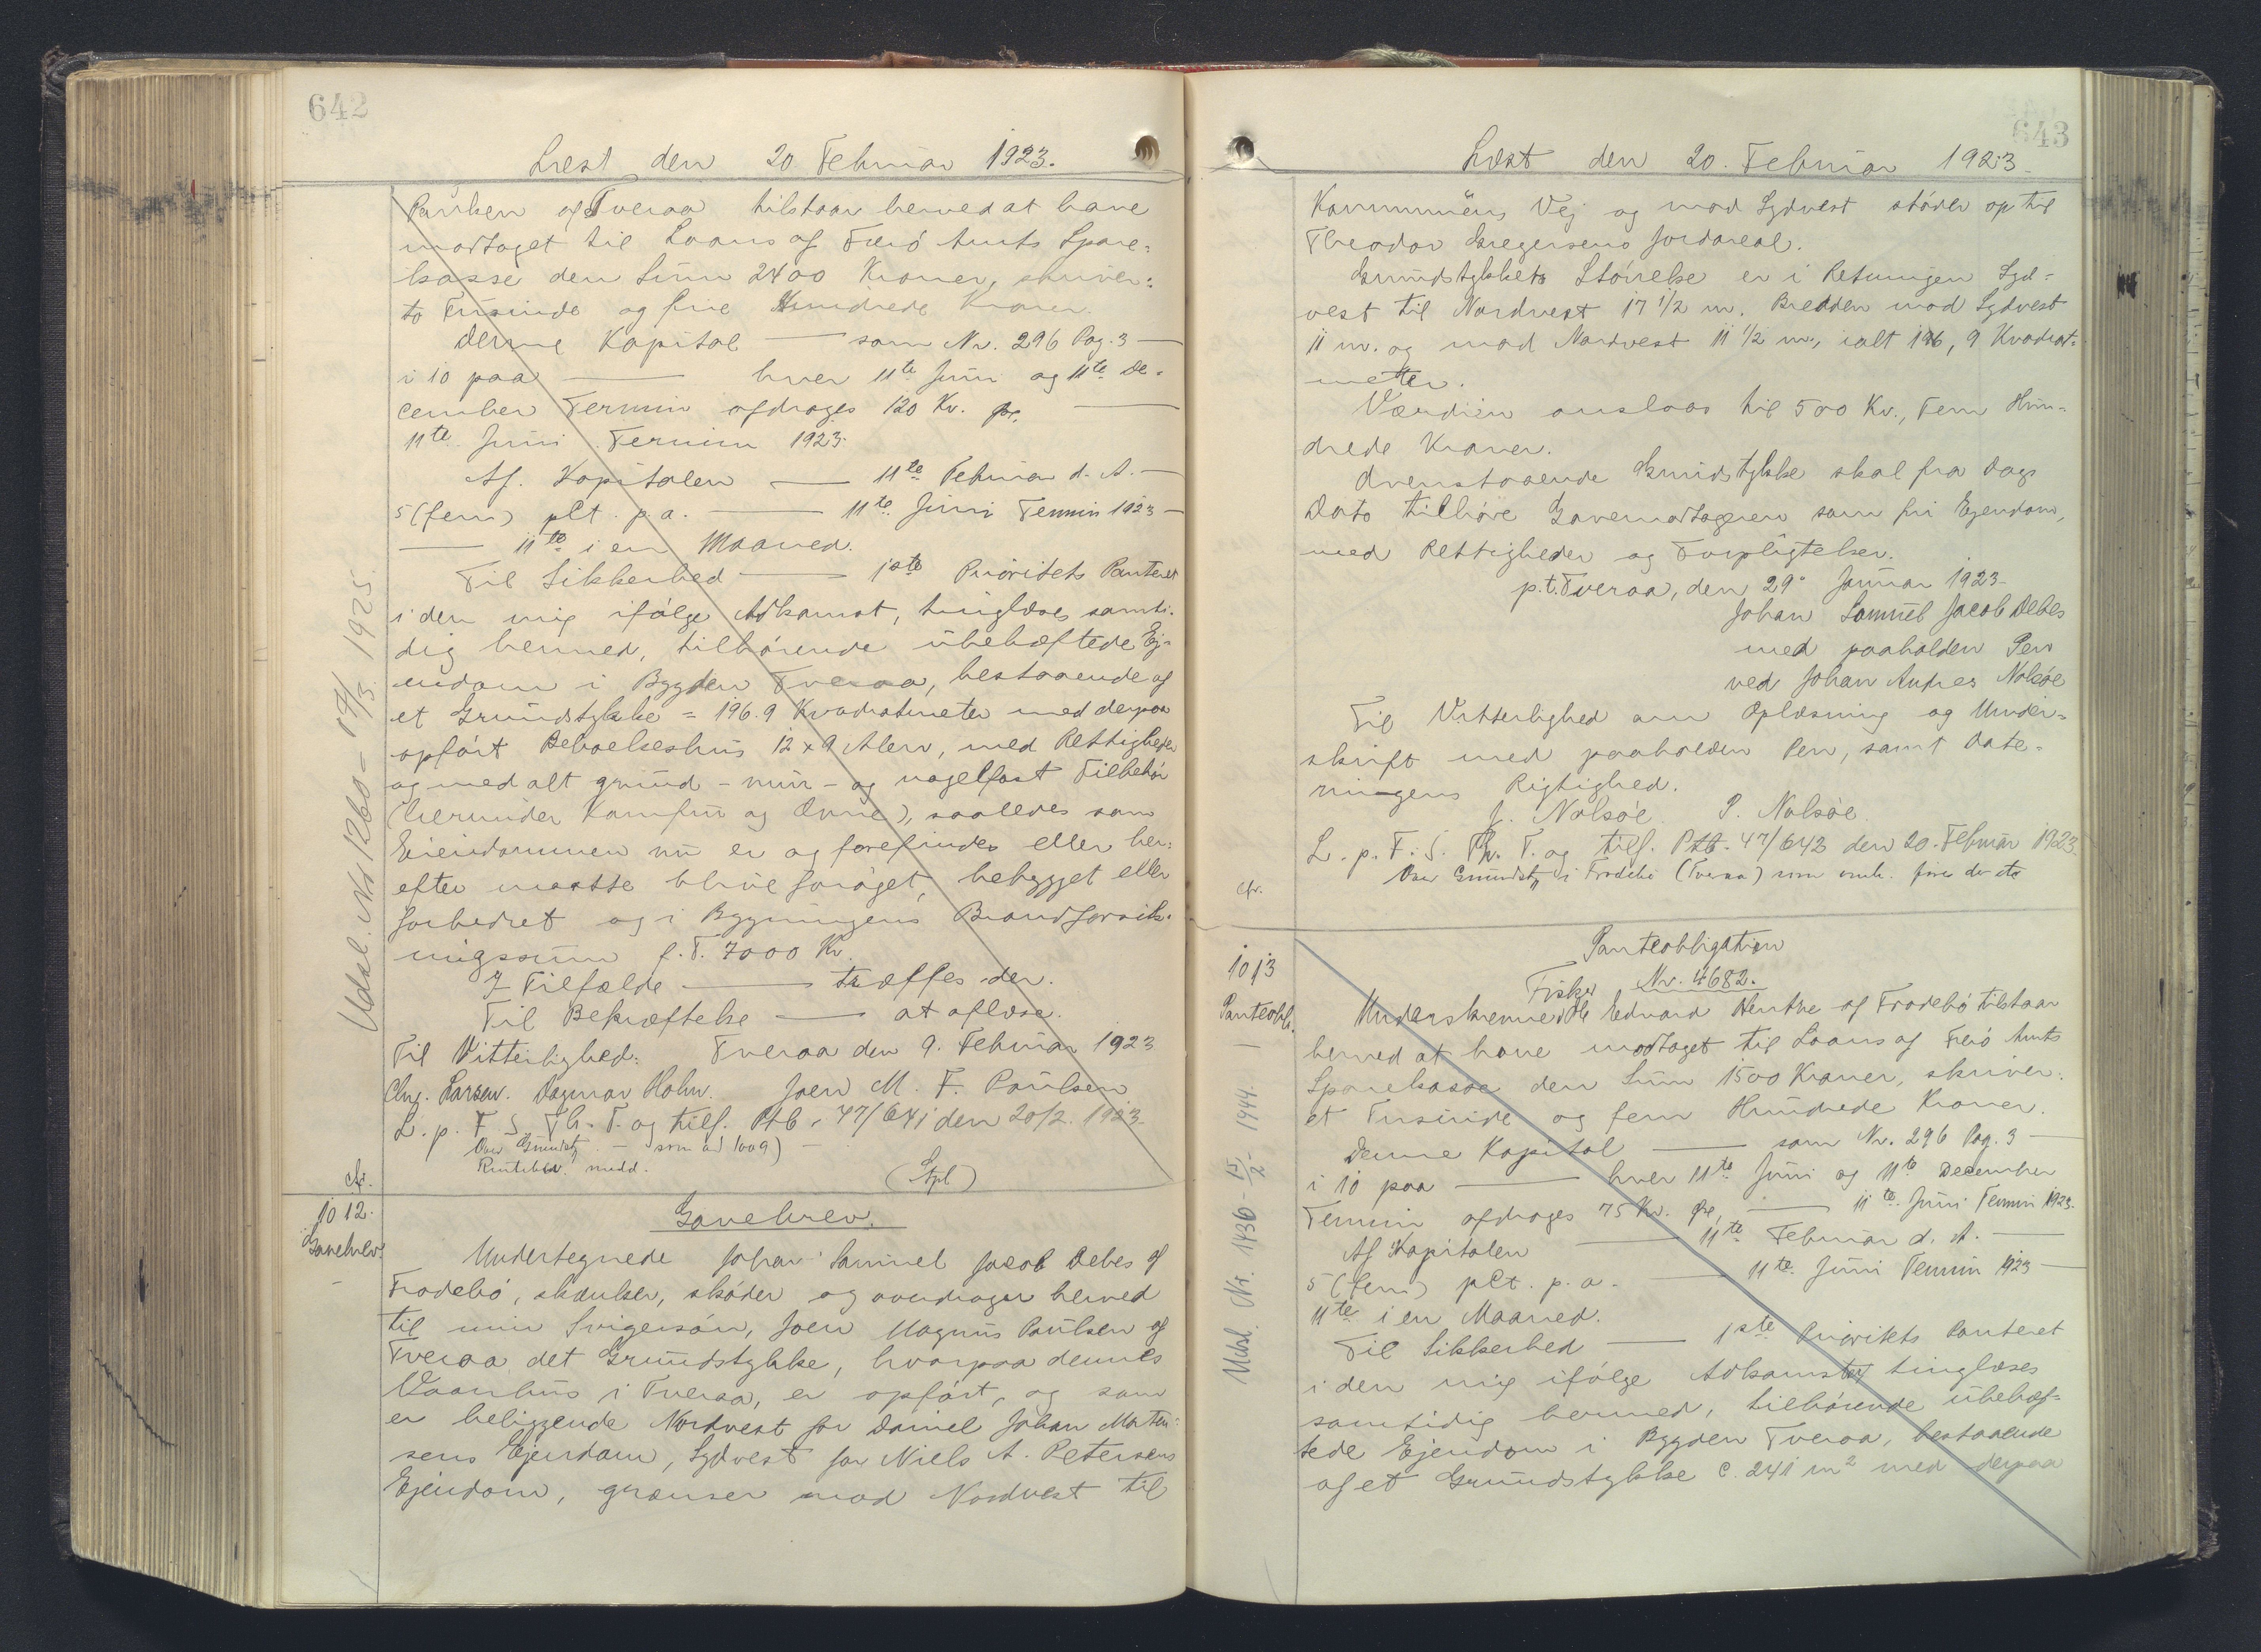 642
Læst den 20 Februar 1923.
Paulsen af Tveraa tilstaar herved at have
modtaget til Laans af Færø Amts Spare=
kasse den Sum 2400 Kroner, skriver:
to Tusinde og fire Hundrede Kroner.
Denne Kapital — som Nr. 296 Pag. 3 —
i 10 paa — hver 11te Juni og 11te De=
cember Termin afdrages 120 Kr. fra —
11te Juni Termin 1923.
Af Kapitalen — 11te Februar d. A. —
5 (fem) pCt. p. a. — 11te Juni Termin 1923 —
— 11te i en Maaned.
Til Sikkerhed — 1ste Prioritets Panteret
i den mig ifølge Adkomst, tinglæses samti=
dig hermed, tilhørende ubehæftede Ej=
endom i Bygden Tveraa, bestaaende af
et Grundstykke = 196.9 Kvadratmeter med derpaa
opført Beboelseshus 12 x 9 Alen, med Rettigheder
og med alt grund- mur- og nagelfast Tilbehør
(herunder Komfur og Ovne), saaledes som
Eiendommen nu er og forefindes eller her=
efter maatte blive forøget, bebygget eller
forbedret og i Bygningens Brandforsik=
ringssum p. T. 7000 Kr.
I Tilfælde — træffes der.
Til Bekræftelse — at aflæse.
Til Vitterlighed: Tveraa den 9. Februar 1923
Chr. Larsen. Dagmar Holm. Joen M. F. Paulsen
L. p. F. S. Th. T. og tilf. Ptb. 47/641 den 20/2. 1923.
Over Grundst. — som ad 1009) —
medd.
(Spl)
Udsl. Nr 1260 - 17/3. 1925.
cfr.
1012.
Gavebrev
Gavebrev.
Undertegnede Johan Samuel Jacob Debes af
Frodebø, skænker, skøder og overdrager herved
til min Svigersøn, Joen Magnus Paulsen af
Tveraa det Grundstykke, hvorpaa dennes
Vaanhus i Tveraa, er opført, og som
er beliggende Nordvest for Daniel Johan Morten=
sens Ejendom, Sydvest for Niels A. Petersens
Ejendom, grænser mod Nordvest til
643
Læst den 20. Februar 1923.
Kommunens Vej og mod Sydvest støder op til
Theodor Gregersens Jordareal.
Grundstykkets Størrelse er i Retningen Syd=
vest til Nordvest 17 1/2 m. Bredden mod Sydvest
11 m. og mod Nordvest 11 1/2 m., ialt 196,9 Kvadrat=
meter.
Værdien anslaas til 500 Kr., Fem Hun=
drede Kroner.
Ovenstaaende Grundstykke skal fra Dags
Dato tilhøre Gavemodtageren som fri Ejendom,
med Rettigheder og Forpligtelser.
p.t. Tveraa, den 29' Januar 1923.
Johan Samuel Jacob Debes
med paaholden Pen
ved Johan Andres Nolsøe
Til Vitterlighed om Oplæsning og Under=
skrift med paaholden Pen, samt Date=
ringens Rigtighed.
J. Nolsøe. P. Nolsøe.
L. p. F. S. Th. T. og tilf. Ptb. 47/642 den 20. Februar 1923.
Over Grundst. i Frodebø (Tveraa) som
cfr.
1013
Panteobl.
Panteobligation
Nr. 4682.
Underskrevne Fisker Ole Edvard Henthe af Frodebø tilstaar
herved at have modtaget til Laans af Færø Amts
Sparekasse den Sum 1500 Kroner, skriver:
et Tusinde og fem Hundrede Kroner.
Denne Kapital — som Nr. 296 Pag. 3 —
i 10 paa — hver 11te Juni og 11te December
Termin afdrages 75 Kr. fra — 11te Juni Termin 1923.
Af Kapitalen — 11te Februar d. A. —
5 (fem) pCt. p. a. — 11te Juni Termin 1923 —
11te i en Maaned.
Til Sikkerhed — 1ste Prioritets Panteret
i den mig ifølge Adkomst tinglæses
samtidig hermed, tilhørende ubehæf=
tede Ejendom i Bygden Tveraa, bestaaende
af et Grundstykke c. 241 m2 med derpaa
Udsl. Nr. 1436 - 15/2 - 1944.